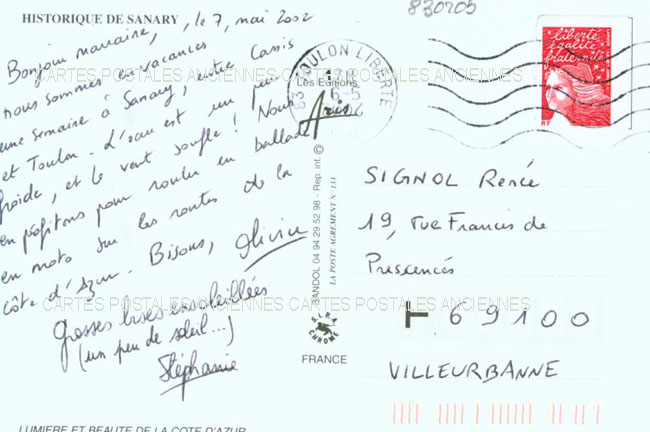 HISTORIQUE DE SANARY
830205
, le 7, mai 2002
Bonjour marraine,
nous sommes en vacances
une semaine à Sanary, entre Cassis
et Toulon. L'eau est un peu
froide, et le vent souffle! Nous
en profitons pour rouler en ballade
en moto sur les routes de la
côte d'Azur. Bisous, Olivier
Grosses bises ensoleillées
(un peu de soleil...)
Stéphanie
LUMIERE ET BEAUTE DE LA COTE D'AZUR
CARTES POSTALES ANCIENNES CARTES POSTALES ANCIENNES
CARTES POSTALES ANCIENNES CARTES POSTALES ANCIENNES
83 TOULON LIBERTE
6-5
Les Editions
Aris
BANDOL 04 94 29 52 98 - Rep. int. ©
LA POSTE AGREMENT N° 133
S.L.R.A. CHROME
FRANCE
liberté
égalité
fraternité
RF
SIGNOL Renée
19, rue Francis de
Pressencés
69100
VILLEURBANNE